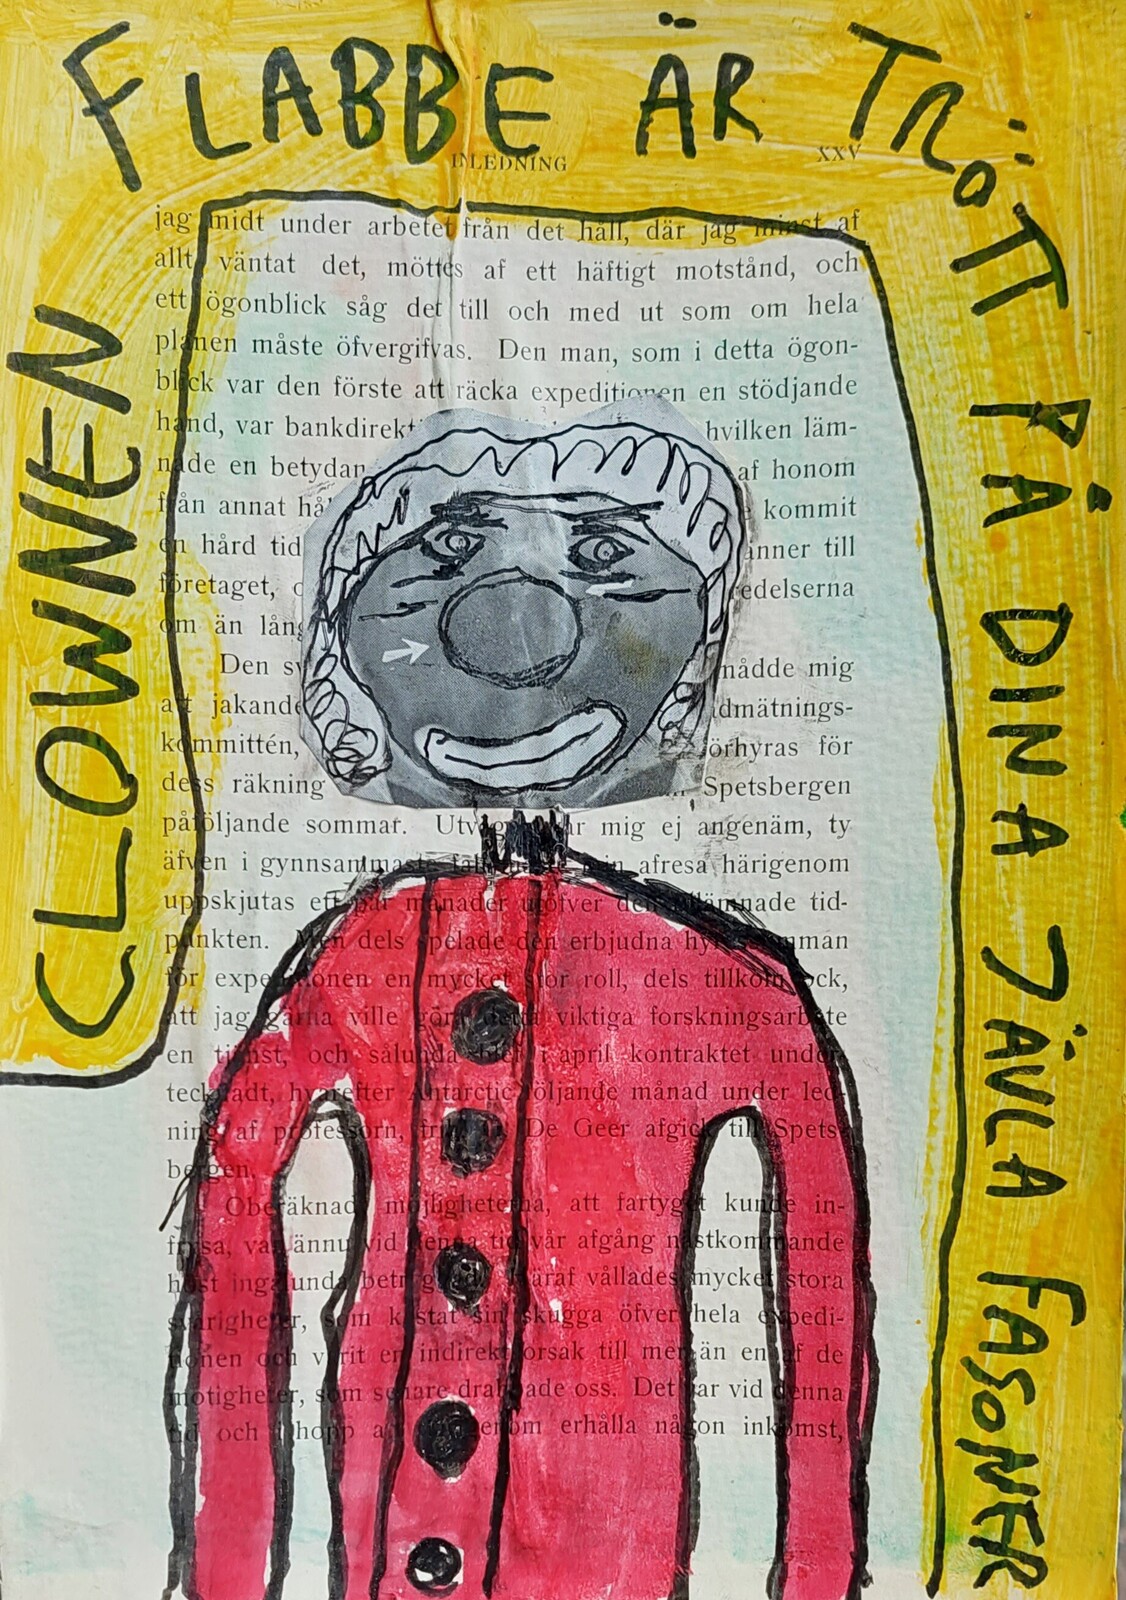 CLOWNEN
FLABBE ÄR TRÖTT
PÅ DINA JÄVLA FASONER
INLEDNING XXV
jag midt under arbetet från det håll, där jag minst af
allt väntat det, möttes af ett häftigt motstånd, och
ett ögonblick såg det till och med ut som om hela
planen måste öfvergifvas. Den man, som i detta ögon-
blick var den förste att räcka expeditionen en stödjande
hand, var bankdirekt hvilken läm-
nade en betydan af honom
från annat hå kommit
en hård tid änner till
företaget, redelserna
om än lång
Den sv nådde mig
att jakande dmätnings-
kommittén, förhyras för
dess räkning Spetsbergen
påföljande sommar. mig ej angenäm, ty
äfven i gynnsammaste min afresa härigenom
uppskjutas ett par månader utöfver den nade tid-
punkten. Men dels spelade den erbjudna hyressumman
för expeditionen en mycket stor roll, dels tillkom ock,
att jag gärna ville göra detta viktiga forskningsarbete
en tjänst, och sålunda blef i april kontraktet under-
tecknadt, hvarefter Antarctic följande månad under led-
ning af professorn, De Geer afgick till Spets-
bergen.
Oberäknad möjligheterna, att fartyget kunde in-
frysa, var ännu vid denna tid vår afgång nästkommande
höst inga häraf vållades mycket stora
svårigheter, som kastat sin skugga öfver hela expedi-
tionen och varit en indirekt orsak till mer än en af de
motigheter, som senare drabbade oss. Det var vid denna
tid och hopp erhålla någon inkomst,